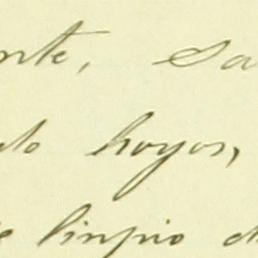 nte, sa
do hoyos,
e linpio d